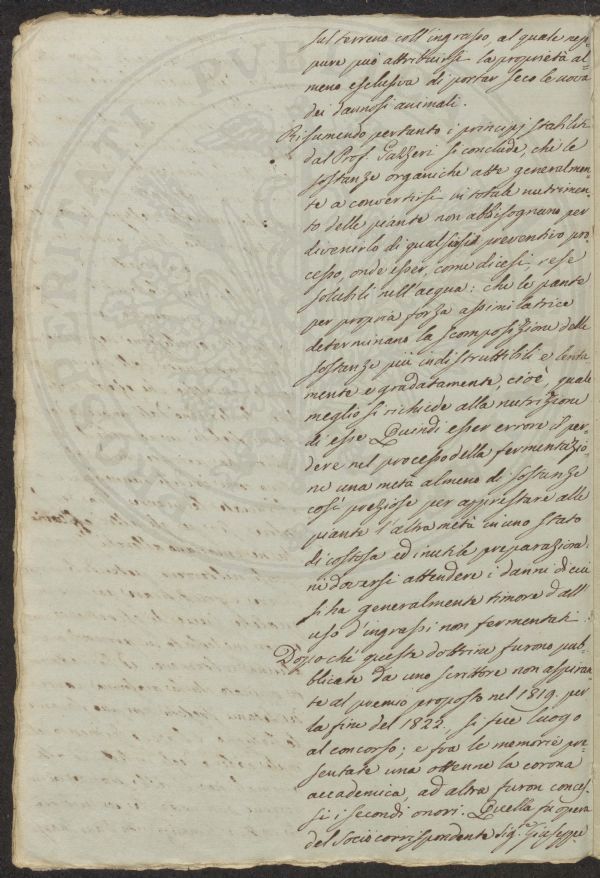 sul terreno coll'ingrasso, al quale nep=
pure può attribuirsi la proprietà al=
meno esclusiva di portar seco le uova
dei dannosi animali.
Risumendo pertanto i principj stabiliti
dal Prof. Gazzeri si conclude, che le
sostanze organiche atte generalmen
te a convertirsi in totale nutrimen=
to delle piante non abbisognano per
divenirlo di qualsisia preventivo pro
cesso, onde esser, come dicesi, rese
solubili nell'acqua: che le piante
per propria forza assimilatrice
determinano la scomposizione delle
sostanze più indistruttibili e lenta
mente e gradatamente, cioè quale
meglio si richiede alla nutrizione
di esse. Quindi esser errore il per
dere nel processo della fermentazio
ne una metà almeno di sostanze
così preziose per apprestare alle
piante l'altra metà in uno stato
di costosa ed inutile preparazione:
ni doversi attendere i danni di cui
si ha generalmente timore dall'
uso d'ingrassi non fermentati.
Dopo chè queste dottrine furono pub=
blicate da uno scrittore non aspiran
te al premio proposto nel 1819. per
la fine del 1822. si fece luogo
al concorso; e fra le memorie pre
sentate una ottenne la corona
accademica, ad altra furon conces
si i secondi onori. Quella fu opera
del Socio corrispondente Sig.re Giuseppe
PVB